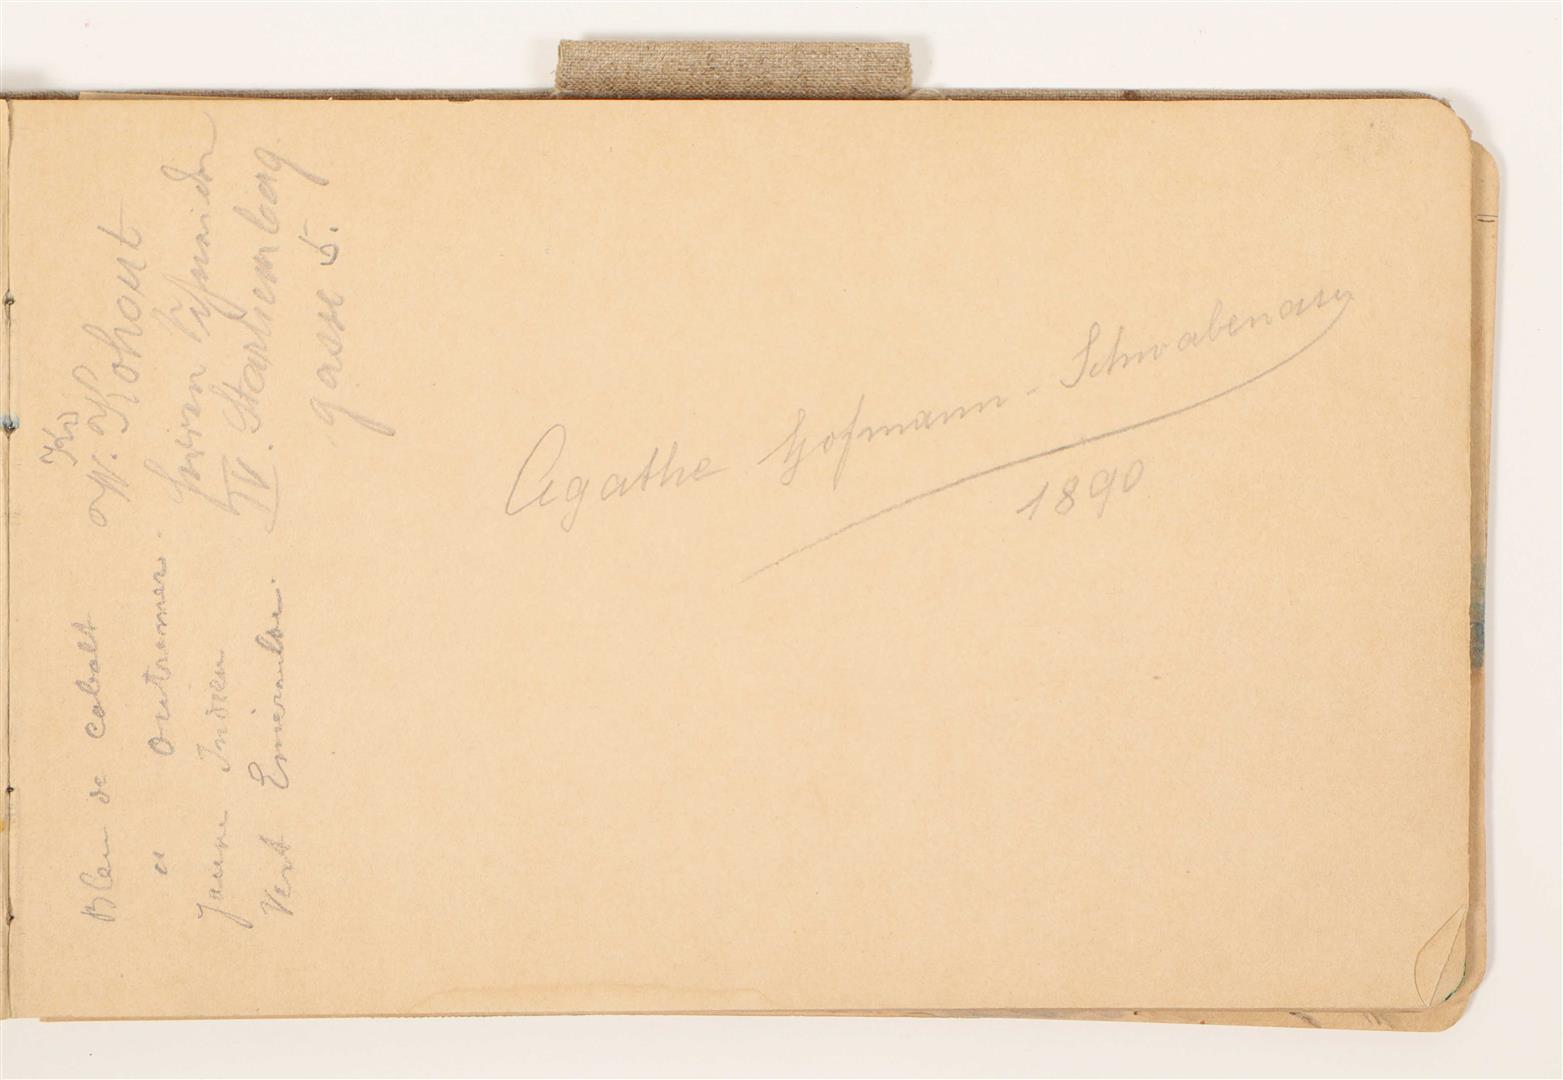 Agathe Hofmann-Schwabenau
1890
Kw
W. Kohout
IV. Starhemberg
gasse 5.
Bleu de cobalt
" Outremer.
Jaune Indien
Vert Emeraude.